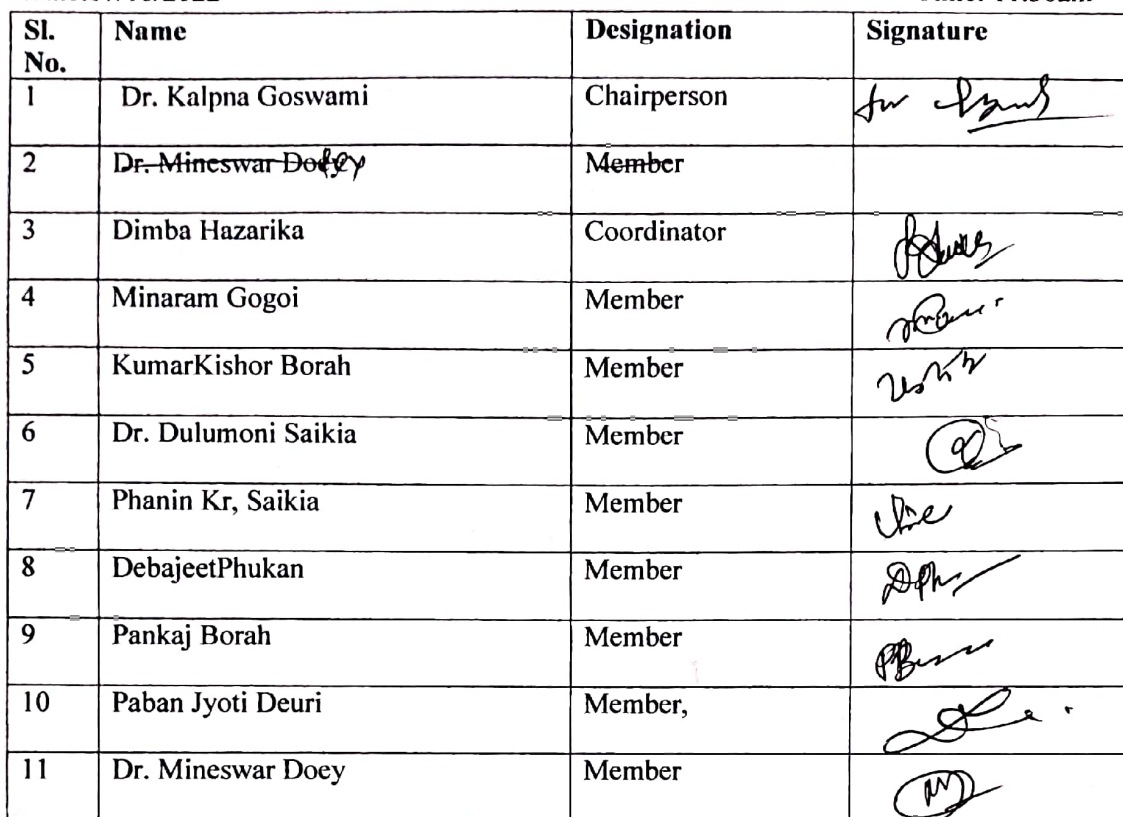 Sl. No. Name Designation Signature
1 Dr. Kalpna Goswami Chairperson for
2 Dr. Mineswar Doley Member
3 Dimba Hazarika Coordinator
4 Minaram Gogoi Member
5 KumarKishor Borah Member
6 Dr. Dulumoni Saikia Member
7 Phanin Kr, Saikia Member
8 DebajeetPhukan Member
9 Pankaj Borah Member
10 Paban Jyoti Deuri Member,
11 Dr. Mineswar Doey Member